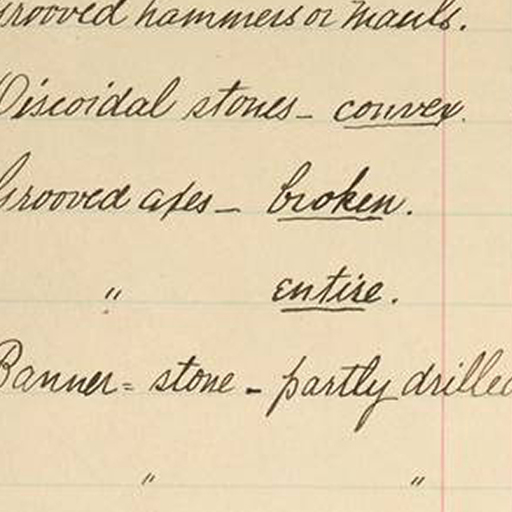 grooved hammers or mauls.
Discoidal stones - convex.
Grooved axes - broken.
" entire.
Banner = stone - partly drilled
" "